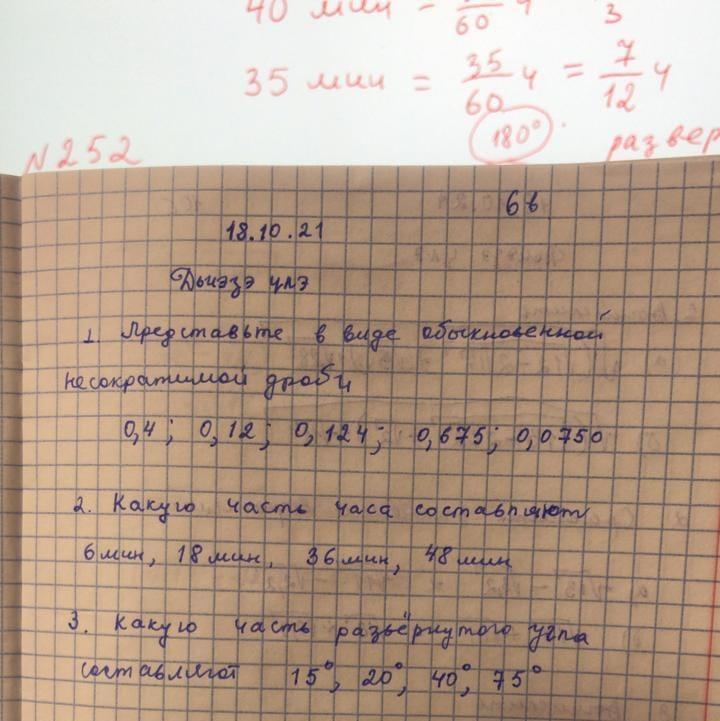 40 мин = /60 ч 3
35 мин = 35/60 ч = 7/12 ч
180°. развер
N252
6в
18.10.21
Дынэзэ цлэ
1. Представьте в виде обыкновенной
несократимой дроби
0,4; 0,12; 0,124; 0,675; 0,0750
2. Какую часть часа составляют
6мин, 18мин, 36мин, 48мин
3. Какую часть развёрнутого угла
составляют 15°, 20°, 40°, 75°